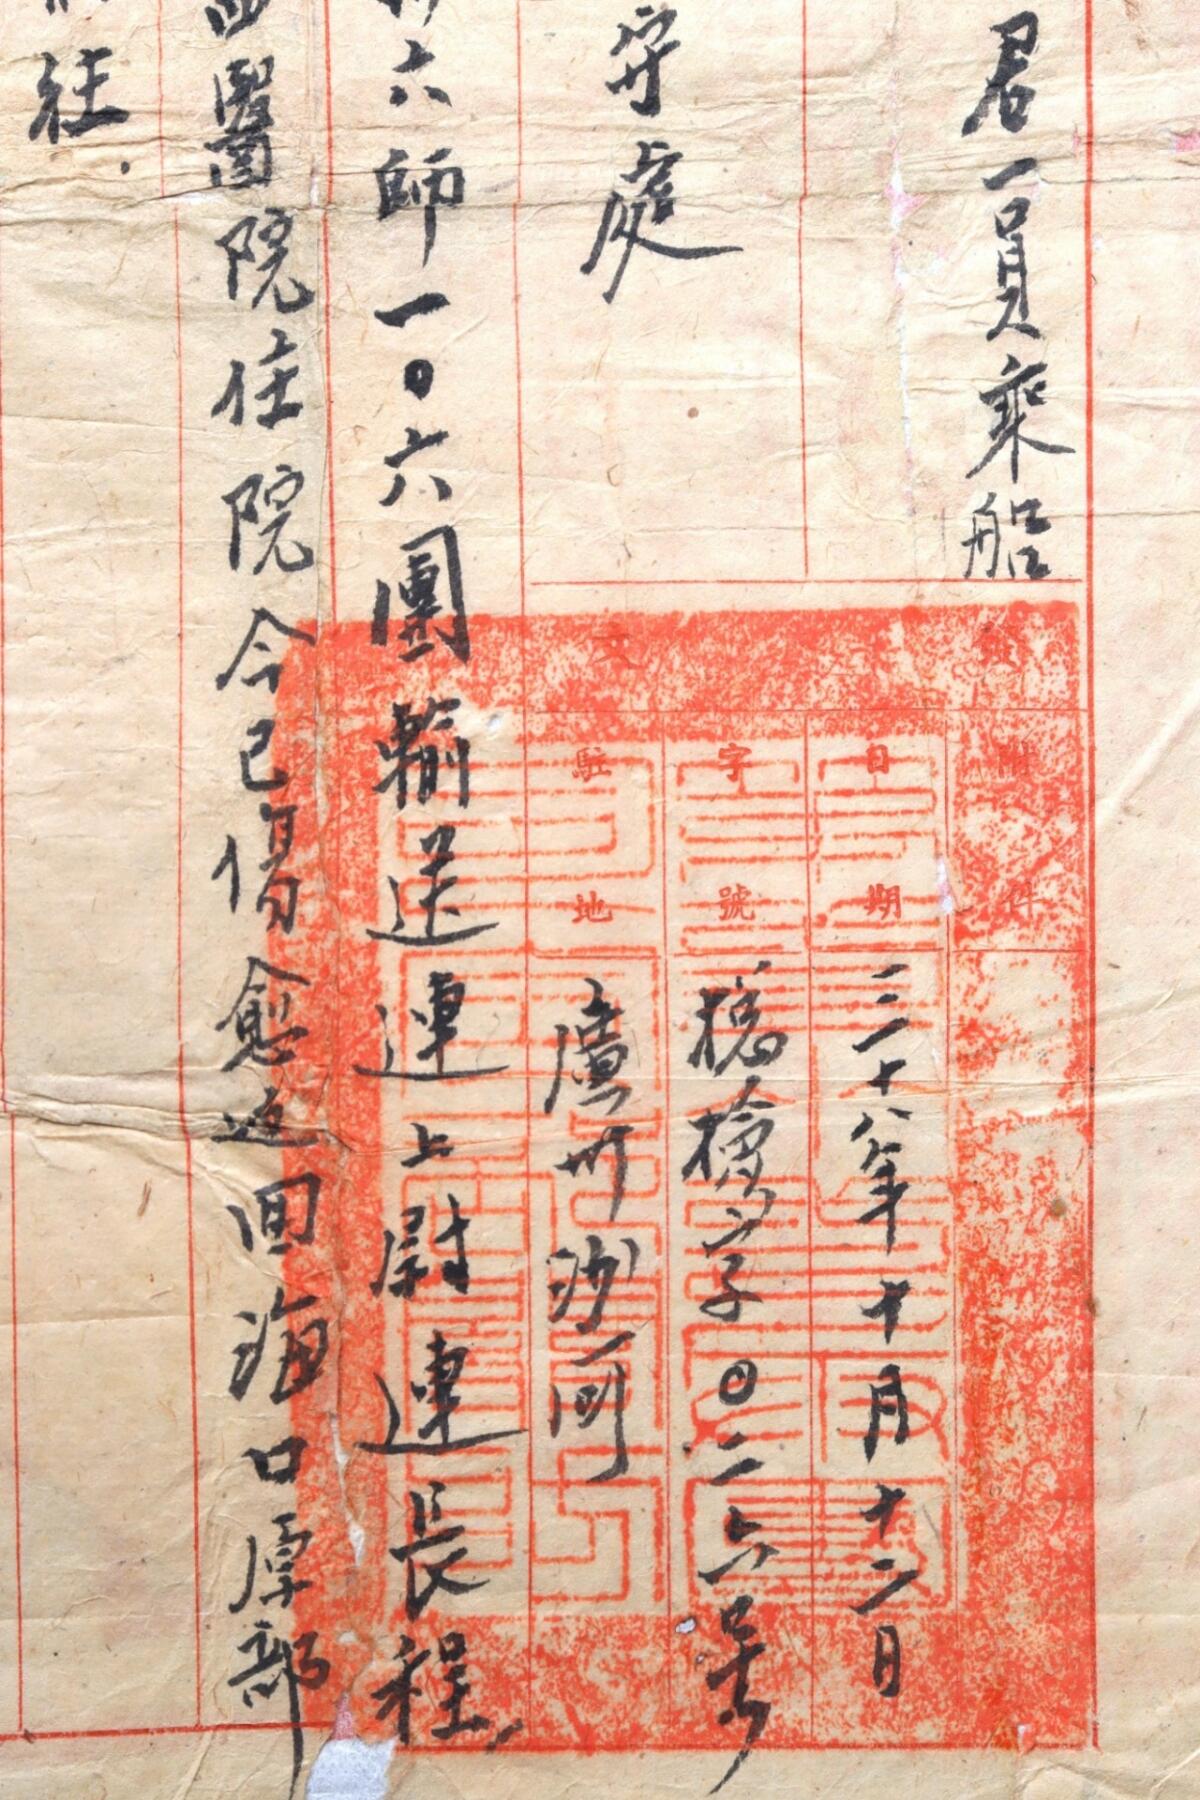 君一員乘船
附件
日期
三十八年十月十二日
字號
字〇二六号
駐地
廣州沙河
文
守處
六師一〇六團輸送連上尉連長程
醫院住院今已傷愈返回海口原部
往.